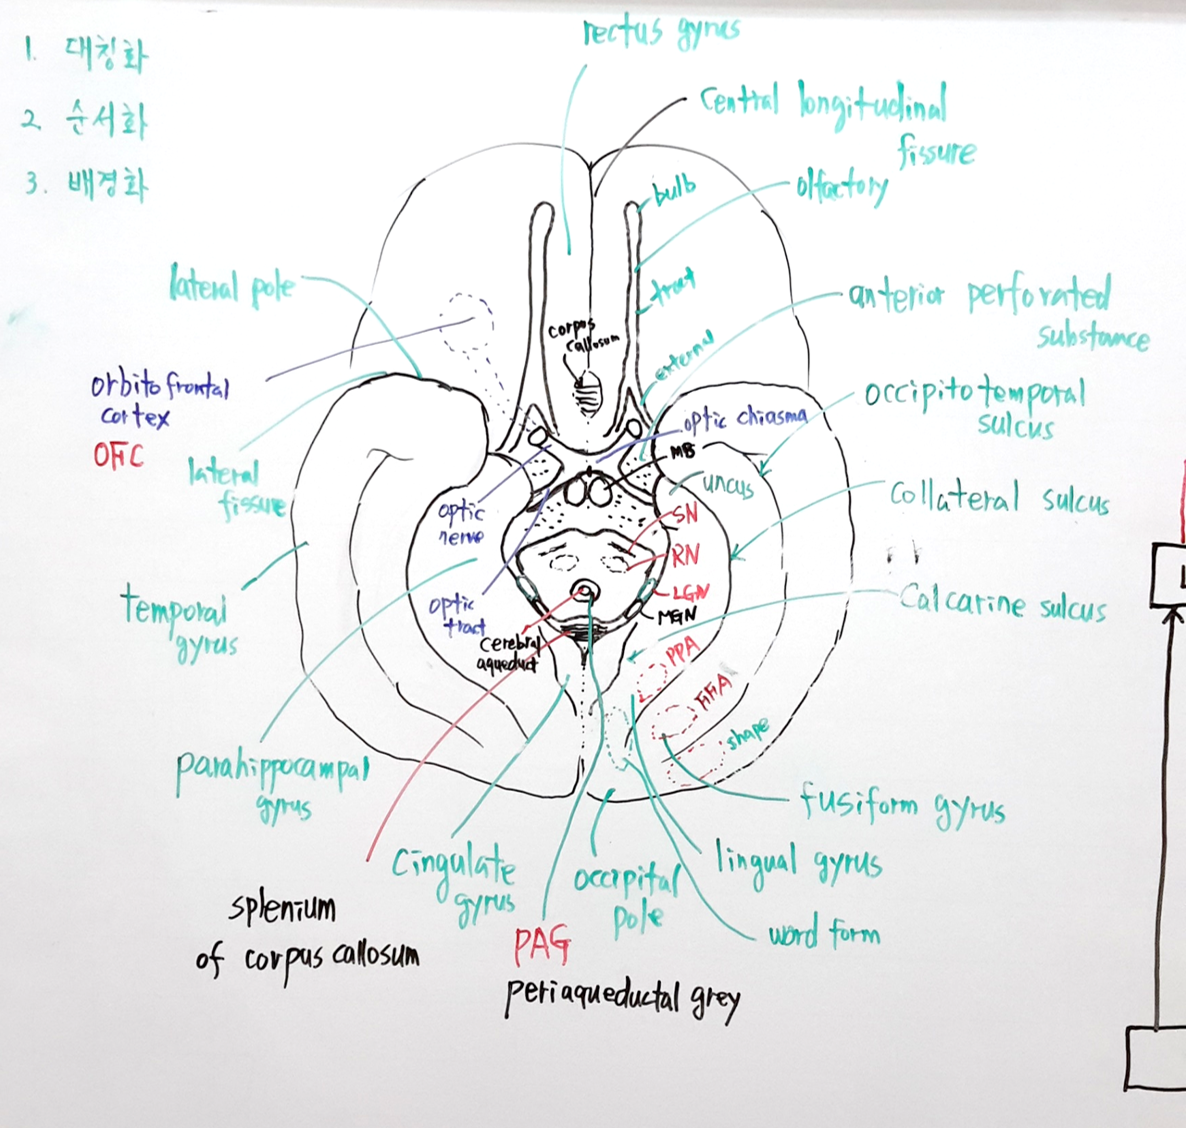 1. 대칭화
2. 순서화
3. 배경화
rectus gyrus
central longitudinal
fissure
bulb
olfactory
tract
lateral pole
anterior perforated
substance
corpus
callosum
external
orbitofrontal
cortex
OFC
occipitotemporal
sulcus
optic chiasma
MB
lateral
fissure
uncus
collateral sulcus
optic
nerve
SN
RN
LGN
MGN
temporal
gyrus
optic
tract
cerebral
aqueduct
Calcarine sulcus
PPA
FFA
shape
parahippocampal
gyrus
fusiform gyrus
cingulate
gyrus
occipital
pole
lingual gyrus
word form
splenium
of corpus callosum
PAG
periaqueductal grey